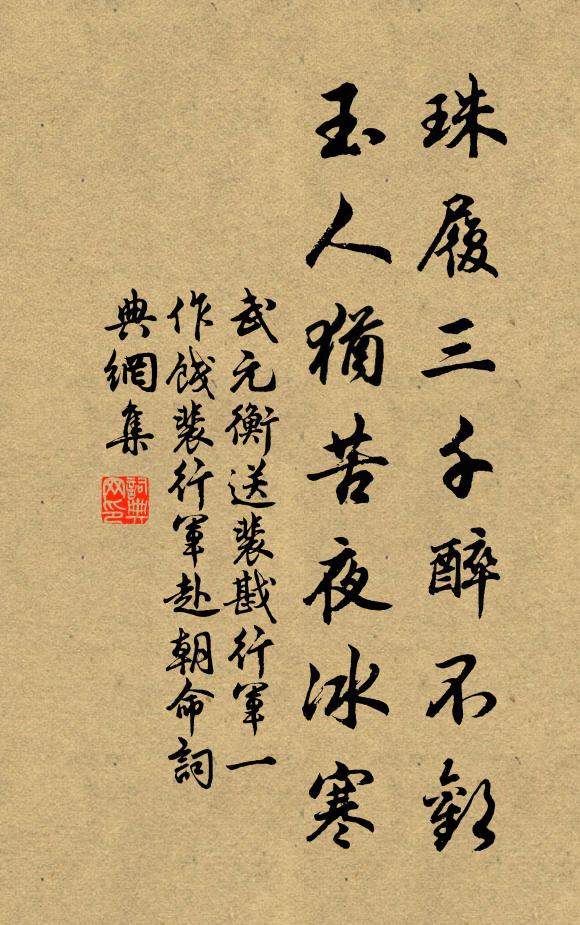 珠履三千醉不歡
玉人猶苦夜冰寒
武元衡送裴戡行軍一
作餞裴行軍赴朝命詞
典網集
詞典
网印